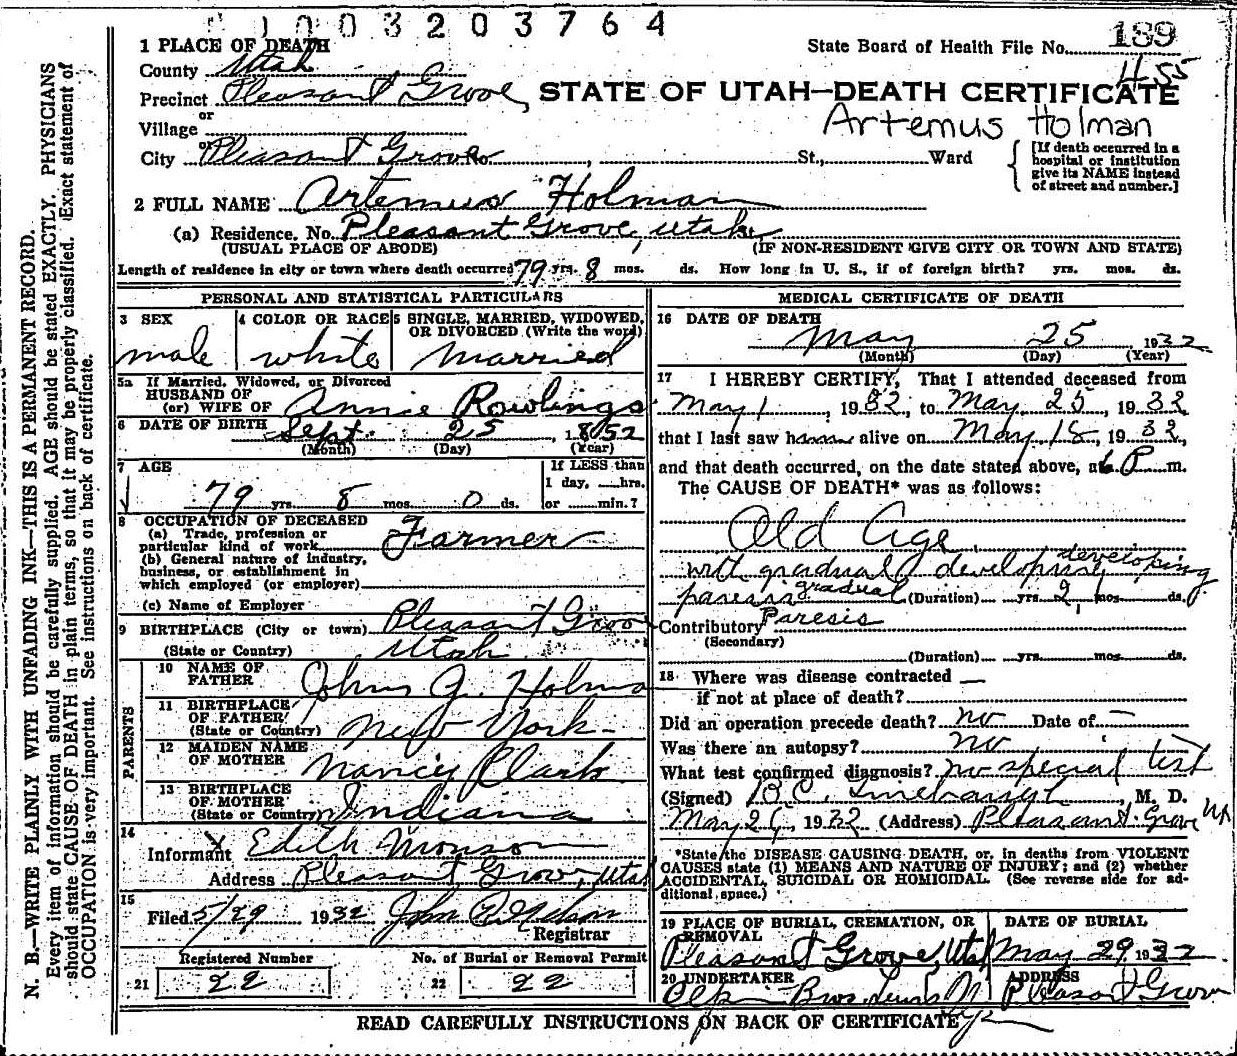 1003203764
189
State Board of Health File No.
455
1 PLACE OF DEATH
County Utah
Precinct Pleasant Grove
or
Village
or
City Pleasant Grove No. , St., Ward
STATE OF UTAH—DEATH CERTIFICATE
Artemus Holman
[If death occurred in a hospital or institution give its NAME instead of street and number.]
2 FULL NAME Artemus Holman
(a) Residence. No. Pleasant Grove, Utah
(USUAL PLACE OF ABODE) (IF NON-RESIDENT GIVE CITY OR TOWN AND STATE)
Length of residence in city or town where death occurred 79 yrs. 8 mos. ds. How long in U. S., if of foreign birth? yrs. mos. ds.
PERSONAL AND STATISTICAL PARTICULARS
3 SEX
male
4 COLOR OR RACE
white
5 SINGLE, MARRIED, WIDOWED, OR DIVORCED (Write the word)
Married
5a If Married, Widowed, or Divorced
HUSBAND OF
(or) WIFE OF Annie Rowlings
6 DATE OF BIRTH Sept. 25, 1852
(Month) (Day) (Year)
7 AGE
79 yrs. 8 mos. 0 ds.
If LESS than
1 day, hrs.
or min.?
8 OCCUPATION OF DECEASED
(a) Trade, profession or
particular kind of work Farmer
(b) General nature of industry,
business, or establishment in
which employed (or employer)
(c) Name of Employer
9 BIRTHPLACE (City or town) Pleasant Grove
(State or Country) Utah
PARENTS
10 NAME OF
FATHER John G. Holman
11 BIRTHPLACE
OF FATHER
(State or Country) New York
12 MAIDEN NAME
OF MOTHER Nancy Clark
13 BIRTHPLACE
OF MOTHER
(State or Country) Indiana
14
Informant Edith Monson
Address Pleasant Grove, Utah
15
Filed 5/29 1932 John Nelson
Registrar
Registered Number
21 22
No. of Burial or Removal Permit
22 22
MEDICAL CERTIFICATE OF DEATH
16 DATE OF DEATH
May 25 1932
(Month) (Day) (Year)
17 I HEREBY CERTIFY, That I attended deceased from
May 1, 1932, to May 25, 1932
that I last saw h alive on May 18, 1932,
and that death occurred, on the date stated above, at 6 P m.
The CAUSE OF DEATH* was as follows:
Old Age
with gradual developing developing
paresis gradual (Duration) yrs. 2 mos. ds.
Contributory Paresis
(Secondary)
(Duration) yrs. mos. ds.
18 Where was disease contracted —
if not at place of death?
Did an operation precede death? no Date of —
Was there an autopsy? no
What test confirmed diagnosis? no special test
(Signed) , M. D.
May 29, 1932 (Address) Pleasant Grove Ut
*State the DISEASE CAUSING DEATH, or, in deaths from VIOLENT
CAUSES state (1) MEANS AND NATURE OF INJURY; and (2) whether
ACCIDENTAL, SUICIDAL OR HOMICIDAL. (See reverse side for ad-
ditional space.)
19 PLACE OF BURIAL, CREMATION, OR
REMOVAL
Pleasant Grove, Utah
DATE OF BURIAL
May 29 1932
20 UNDERTAKER
Bros.
ADDRESS
Pleasant Grove
READ CAREFULLY INSTRUCTIONS ON BACK OF CERTIFICATE
N. B.—WRITE PLAINLY WITH UNFADING INK—THIS IS A PERMANENT RECORD.
Every item of information should be carefully supplied. AGE should be stated EXACTLY. PHYSICIANS
should state CAUSE OF DEATH in plain terms, so that it may be properly classified. Exact statement of
OCCUPATION is very important. See instructions on back of certificate.